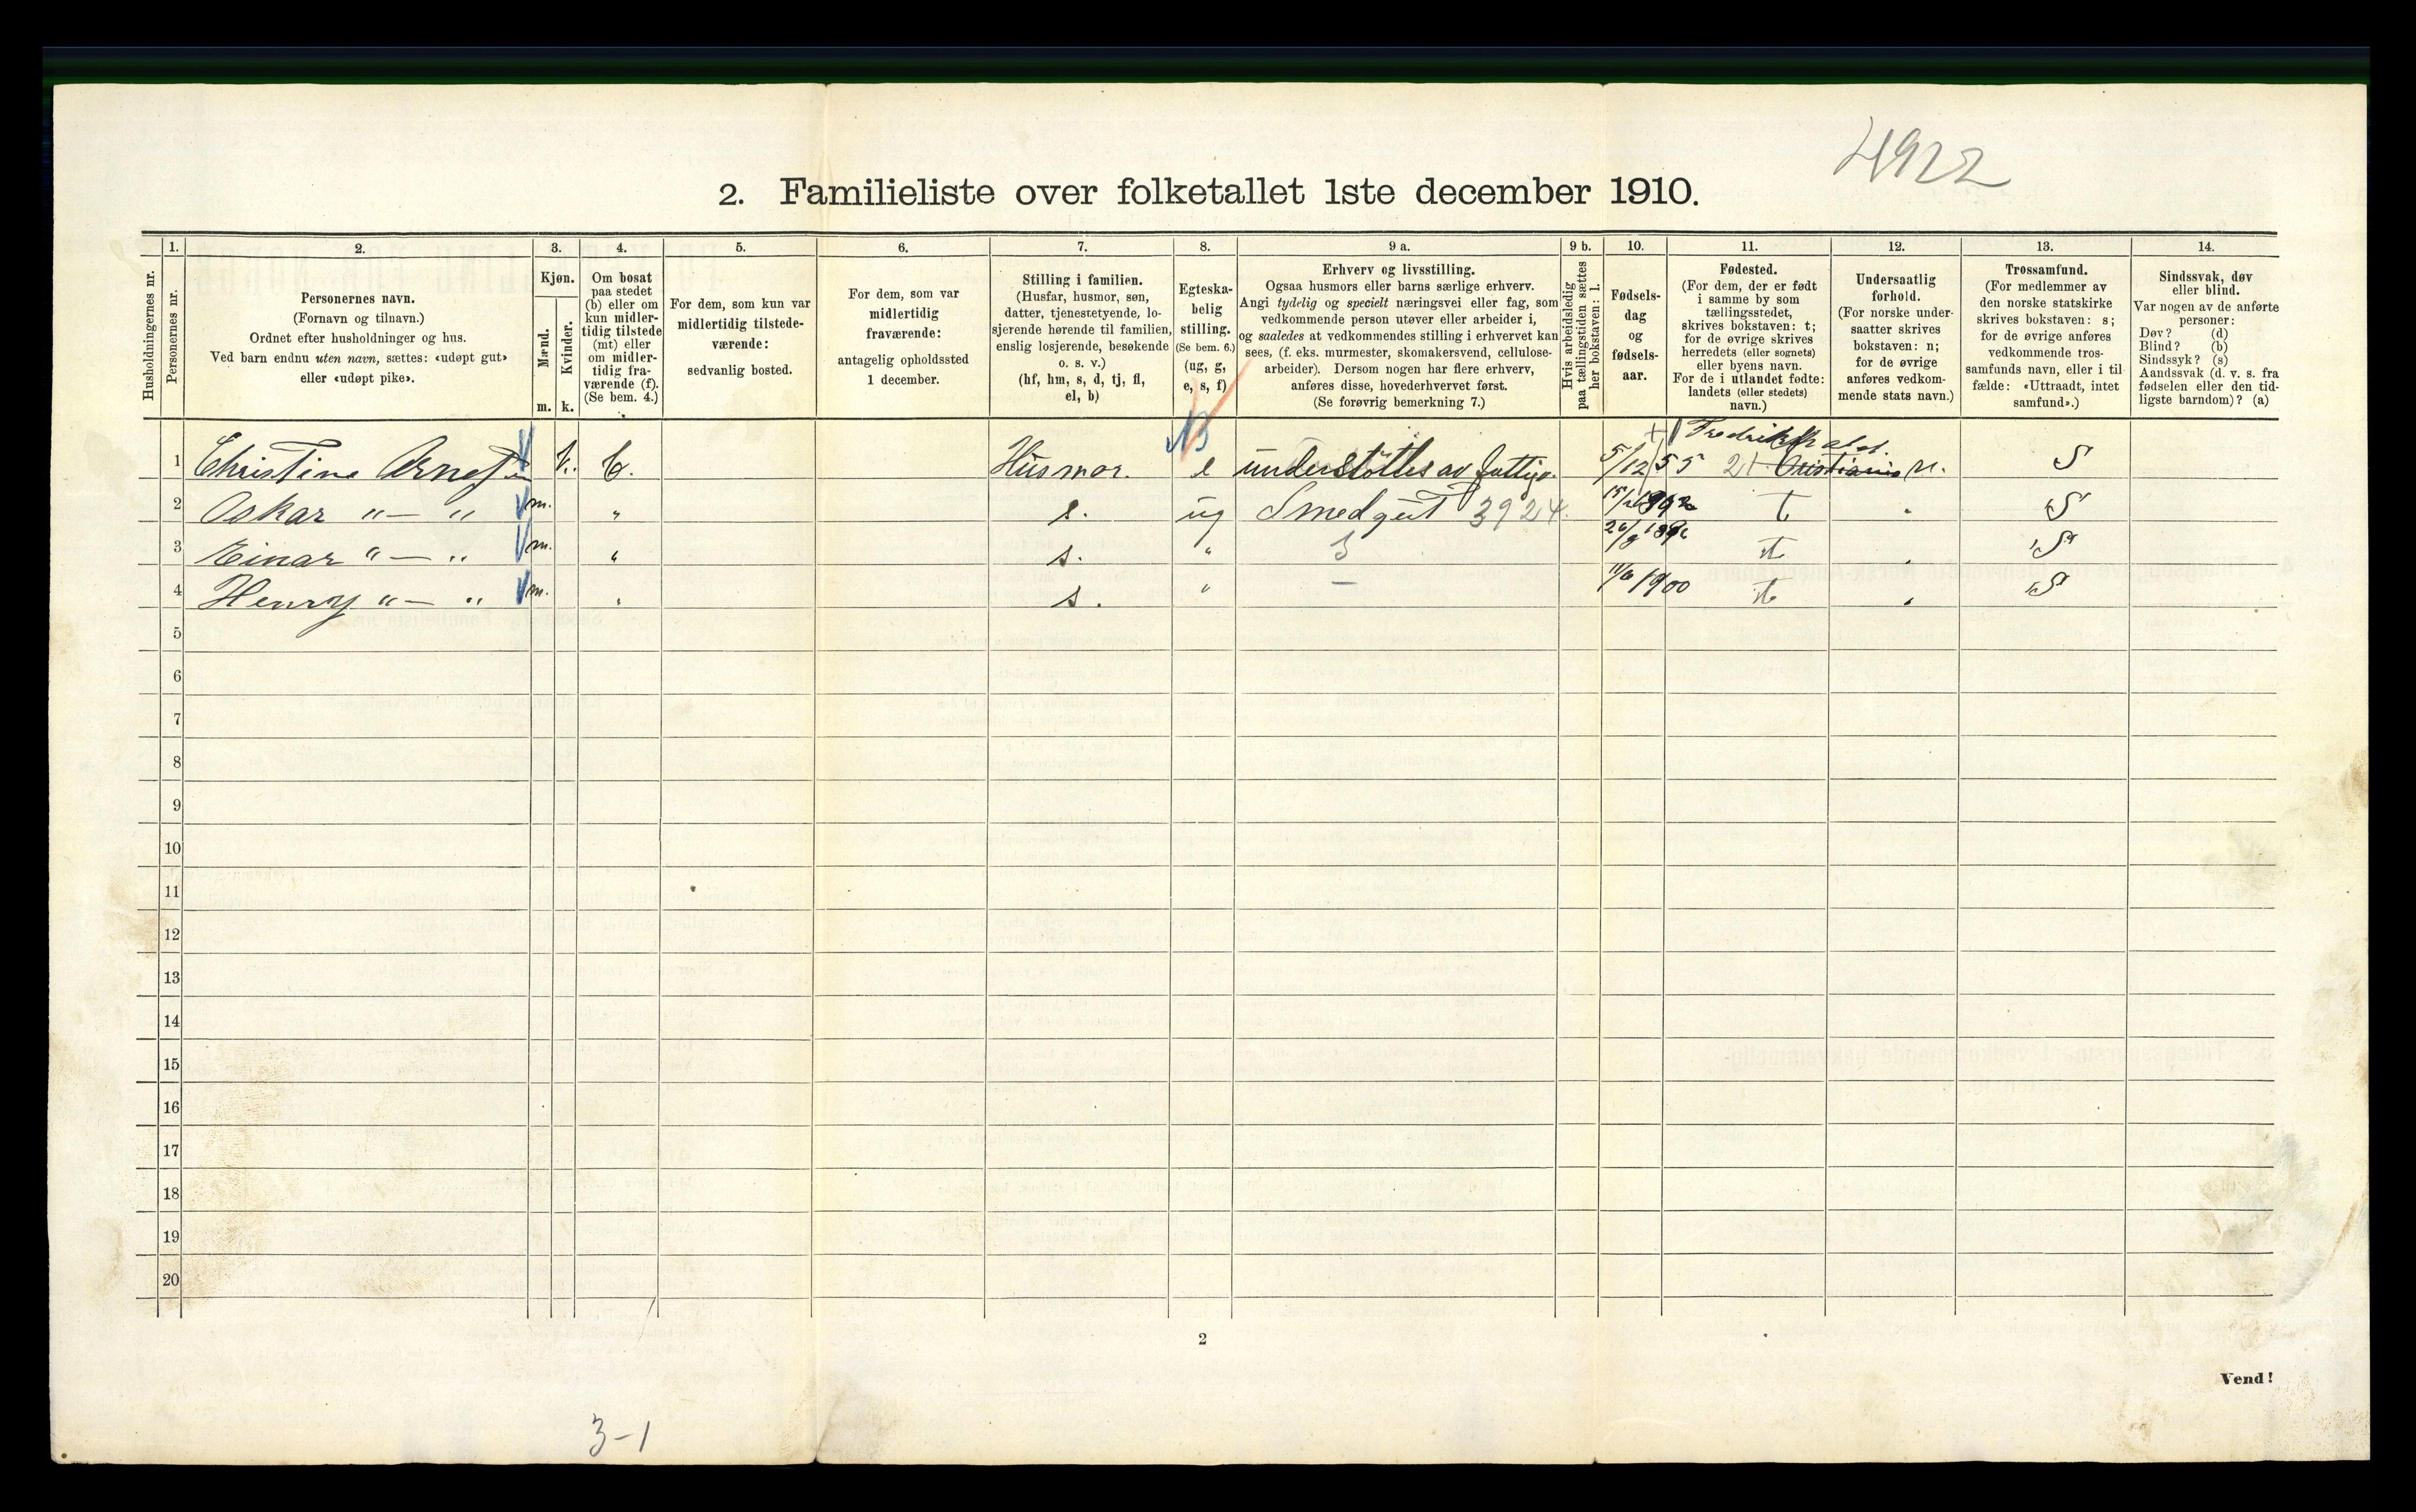 4922
2. Familieliste over folketallet 1ste december 1910.
Husholdningernes nr.
1.
Personernes nr.
2.
Personernes navn.
(Fornavn og tilnavn.)
Ordnet efter husholdninger og hus.
Ved barn endnu uten navn, sættes: «udøpt gut»
eller «udøpt pike».
3.
Kjøn.
Mænd.
Kvinder.
m. k.
4.
Om bosat
paa stedet
(b) eller om
kun midler-
tidig tilstede
(mt) eller
om midler-
tidig fra-
værende (f).
(Se bem. 4.)
5.
For dem, som kun var
midlertidig tilstede-
værende:
sedvanlig bosted.
6.
For dem, som var
midlertidig
fraværende:
antagelig opholdssted
1 december.
7.
Stilling i familien.
(Husfar, husmor, søn,
datter, tjenestetyende, lo-
sjerende hørende til familien,
enslig losjerende, besøkende
o. s. v.)
(hf, hm, s, d, tj, fl,
el, b)
8.
Egteska-
belig
stilling.
(Se bem. 6.)
(ug, g,
e, s, f)
9 a.
Erhverv og livsstilling.
Ogsaa husmors eller barns særlige erhverv.
Angi tydelig og specielt næringsvei eller fag, som
vedkommende person utøver eller arbeider i,
og saaledes at vedkommendes stilling i erhvervet kan
sees, (f. eks. murmester, skomakersvend, cellulose-
arbeider). Dersom nogen har flere erhverv,
anføres disse, hovederhvervet først.
(Se forøvrig bemerkning 7.)
9 b.
Hvis arbeidsledig
paa tællingstiden sættes
her bokstaven: l.
10.
Fødsels-
dag
og
fødsels-
aar.
11.
Fødested.
(For dem, der er født
i samme by som
tællingsstedet,
skrives bokstaven: t;
for de øvrige skrives
herredets (eller sognets)
eller byens navn.
For de i utlandet fødte:
landets (eller stedets)
navn.)
12.
Undersaatlig
forhold.
(For norske under-
saatter skrives
bokstaven: n;
for de øvrige
anføres vedkom-
mende stats navn.)
13.
Trossamfund.
(For medlemmer av
den norske statskirke
skrives bokstaven: s;
for de øvrige anføres
vedkommende tros-
samfunds navn, eller i til-
fælde: «Uttraadt, intet
samfund».)
14.
Sindssvak, døv
eller blind.
Var nogen av de anførte
personer:
Døv? (d)
Blind? (b)
Sindssyk? (s)
Aandssvak (d. v. s. fra
fødselen eller den tid-
ligste barndom)? (a)
Fredrikshald.
1 Christine k. b. Husmor. e understöttes av fattigv. 5/12 55 21 Cristiania n. S
2 Oskar "—" m. " s. ug Smedgut 3924. t " S
3 Einar "—" m. " s. " t " S
4 Henry "—" m. " s. " — 11/6 1900 t " S
5
6
7
8
9
10
11
12
13
14
15
16
17
18
19
20
2
Vend!
3-1